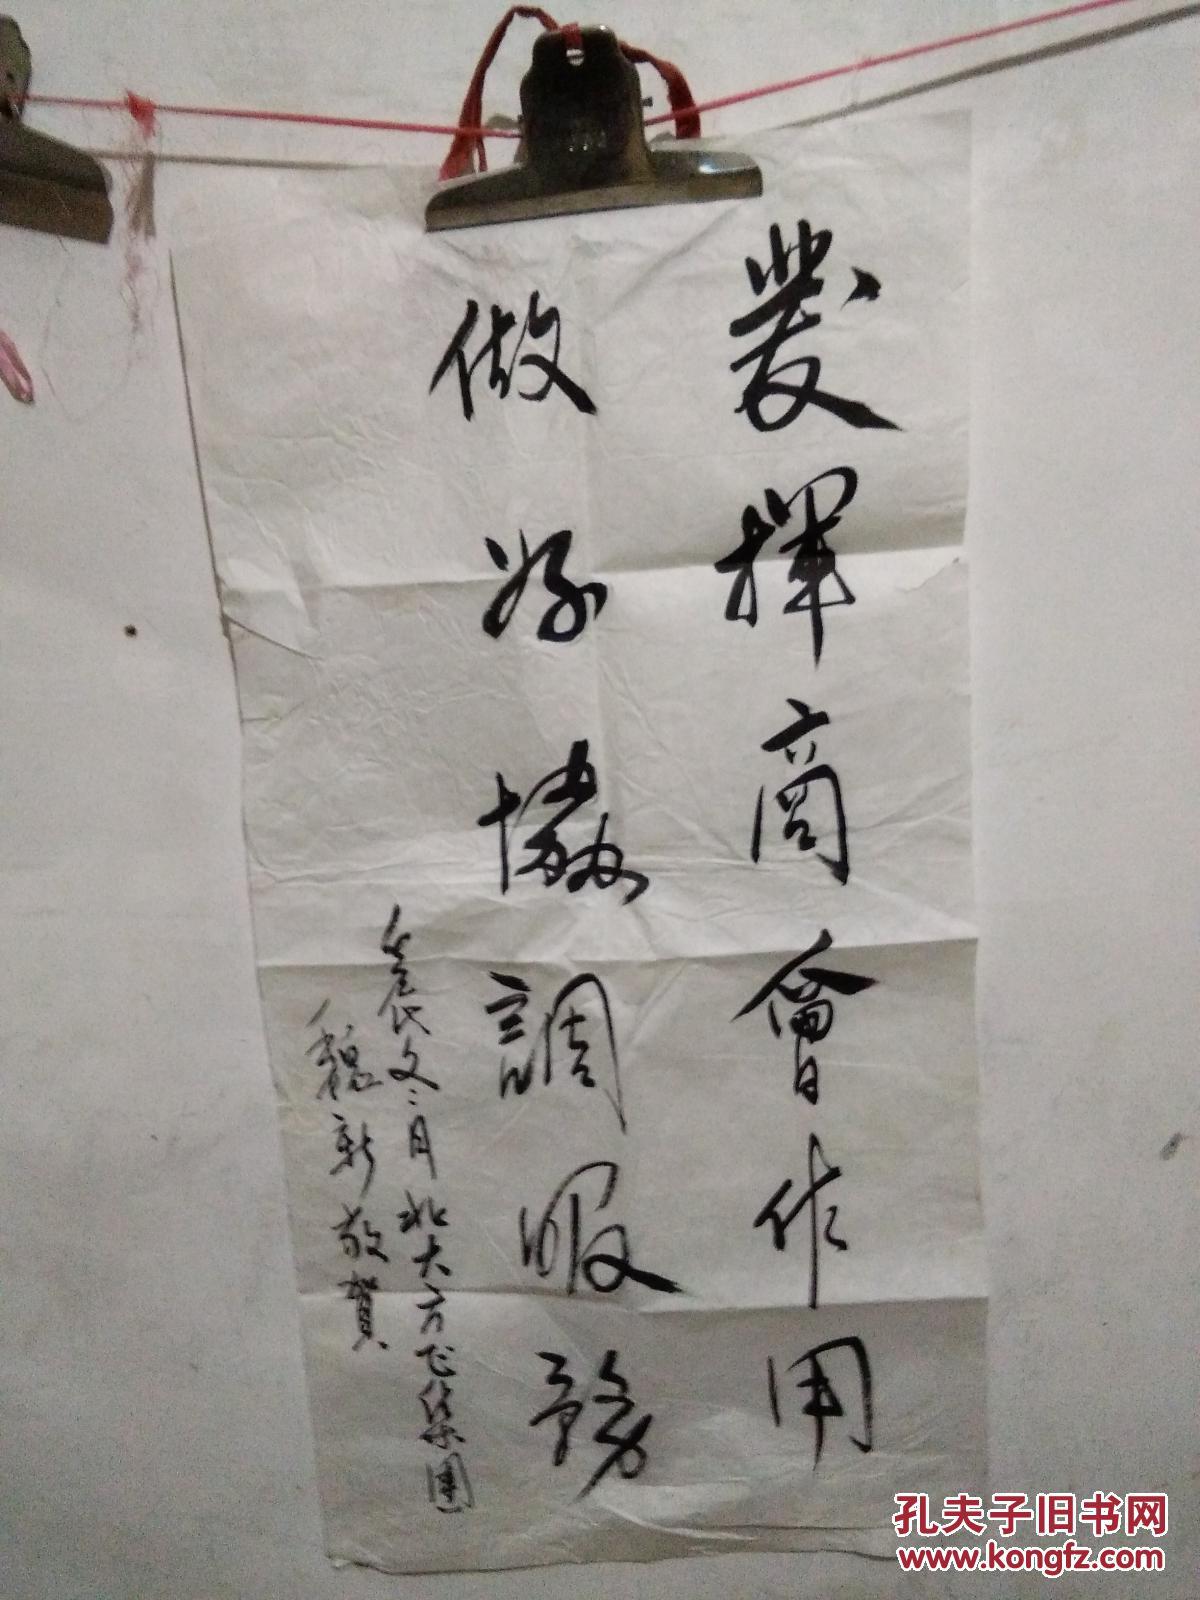 發揮商會作用
做好協調服務
冬月北大方正集團
魏新敬賀
孔夫子旧书网
www.kongfz.com